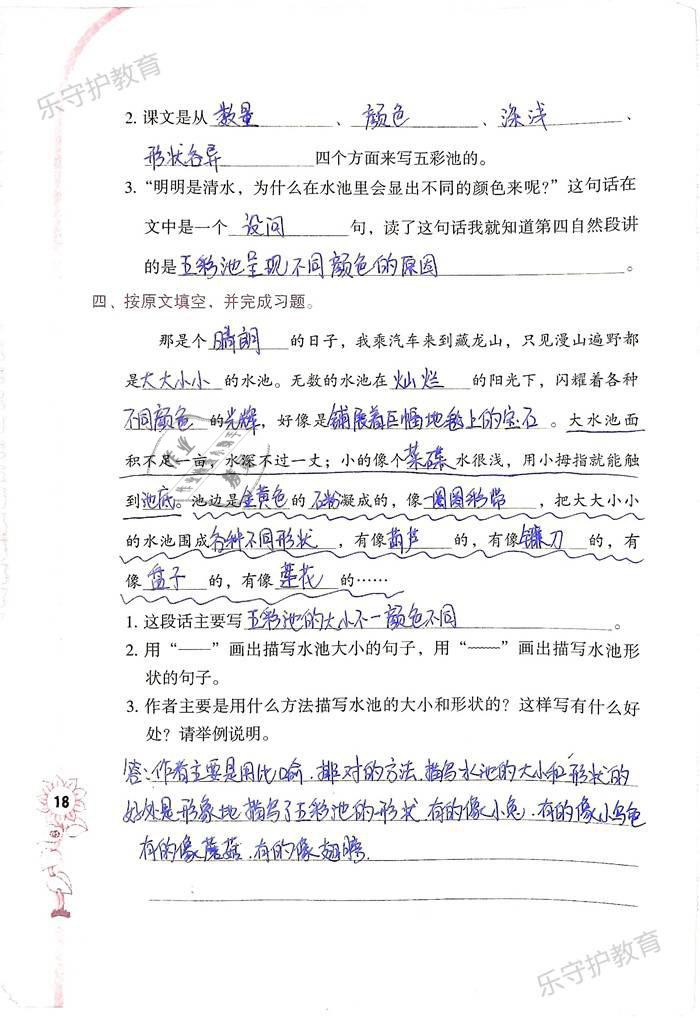 乐守护教育
2. 课文是从 数量 、 颜色 、 深浅 、
形状各异 四个方面来写五彩池的。
3. “明明是清水，为什么在水池里会显出不同的颜色来呢?”这句话在
文中是一个 设问 句，读了这句话我就知道第四自然段讲
的是五彩池呈现不同颜色的原因 。
四、按原文填空，并完成习题。
那是个 晴朗 的日子，我乘汽车来到藏龙山，只见漫山遍野都
是大大小小 的水池。无数的水池在 灿烂 的阳光下，闪耀着各种
不同颜色 的光辉，好像是铺展着巨幅地毯上的宝石 。大水池面
积不足一亩，水深不过一丈；小的像个菜碟水很浅，用小拇指就能触
到池底。池边是金黄色的石粉凝成的，像一圈圈彩带 ，把大大小小
的水池围成各种不同形状 ，有像葫芦 的，有像镰刀 的，有
像 盘子 的，有像 莲花 的……
1. 这段话主要写五彩池的大小不一颜色不同 。
2. 用“——”画出描写水池大小的句子，用“﹏﹏”画出描写水池形
状的句子。
3. 作者主要是用什么方法描写水池的大小和形状的？这样写有什么好
处？请举例说明。
答：作者主要是用比喻．排对的方法．描写水池的大小和形状的
好处是形象地描写了五彩池的形状 有的像小兔．有的像小乌龟
有的像蘑菇．有的像翅膀．
18
乐守护教育